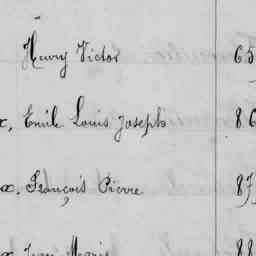 Henry Victor 65
x, Emile Louis Joseph 86
x, François Pierre 87
x Jean Marie 88